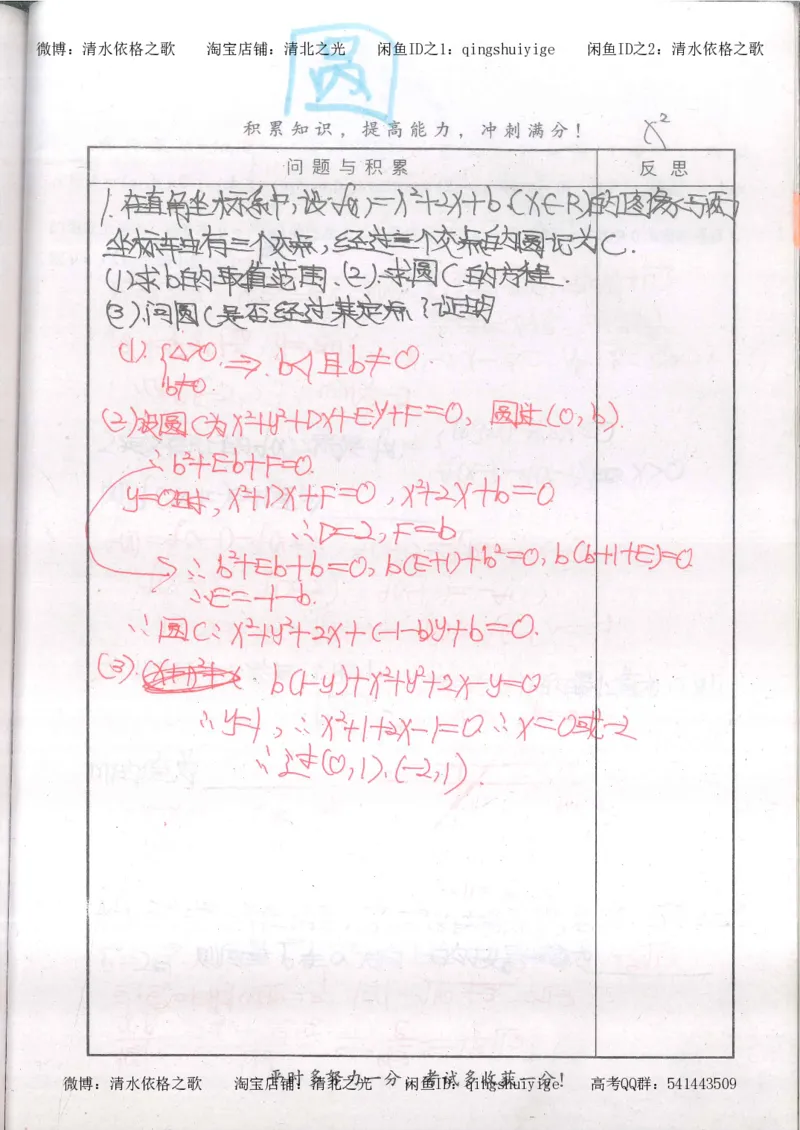 微博：清水依格之歌 淘宝店铺：清北之光 闲鱼ID之1：qingshuiyige 闲鱼ID之2：清水依格之歌
圆
积累知识，提高能力，冲刺满分！
x²
问题与积累 反思
1.在直角坐标系中,设f(x)=x²+2x+b(x∈R)的图像与两
坐标车由有三个交点,经过三个交点的圆记为C.
(1)求b的取值范围.(2).求圆C的方程.
(3).问圆C是否经过某定点?证明
(1).{△>0 ⇒ b<1且b≠0.
b≠0
(2)设圆C为x²+y²+Dx+Ey+F=0, 圆过(0,b).
∴b²+Eb+F=0.
y=0时, x²+Dx+F=0, x²+2x+b=0
∴D=2,F=b.
∴b²+Eb+b=0, b(E+1)+b²=0, b(b+1+E)=0.
∴E=-1-b.
∴圆C: x²+y²+2x+(-1-b)y+b=0.
(3) b(1-y)+x²+y²+2x-y=0
∴y=1, ∴x²+1+2x-1=0 ∴x=0或-2
∴过(0,1).(-2,1).
平时多努力一分，考试多收获一分！
微博：清水依格之歌 淘宝店铺：清北之光 闲鱼ID：qingshuiyige 高考QQ群：541443509